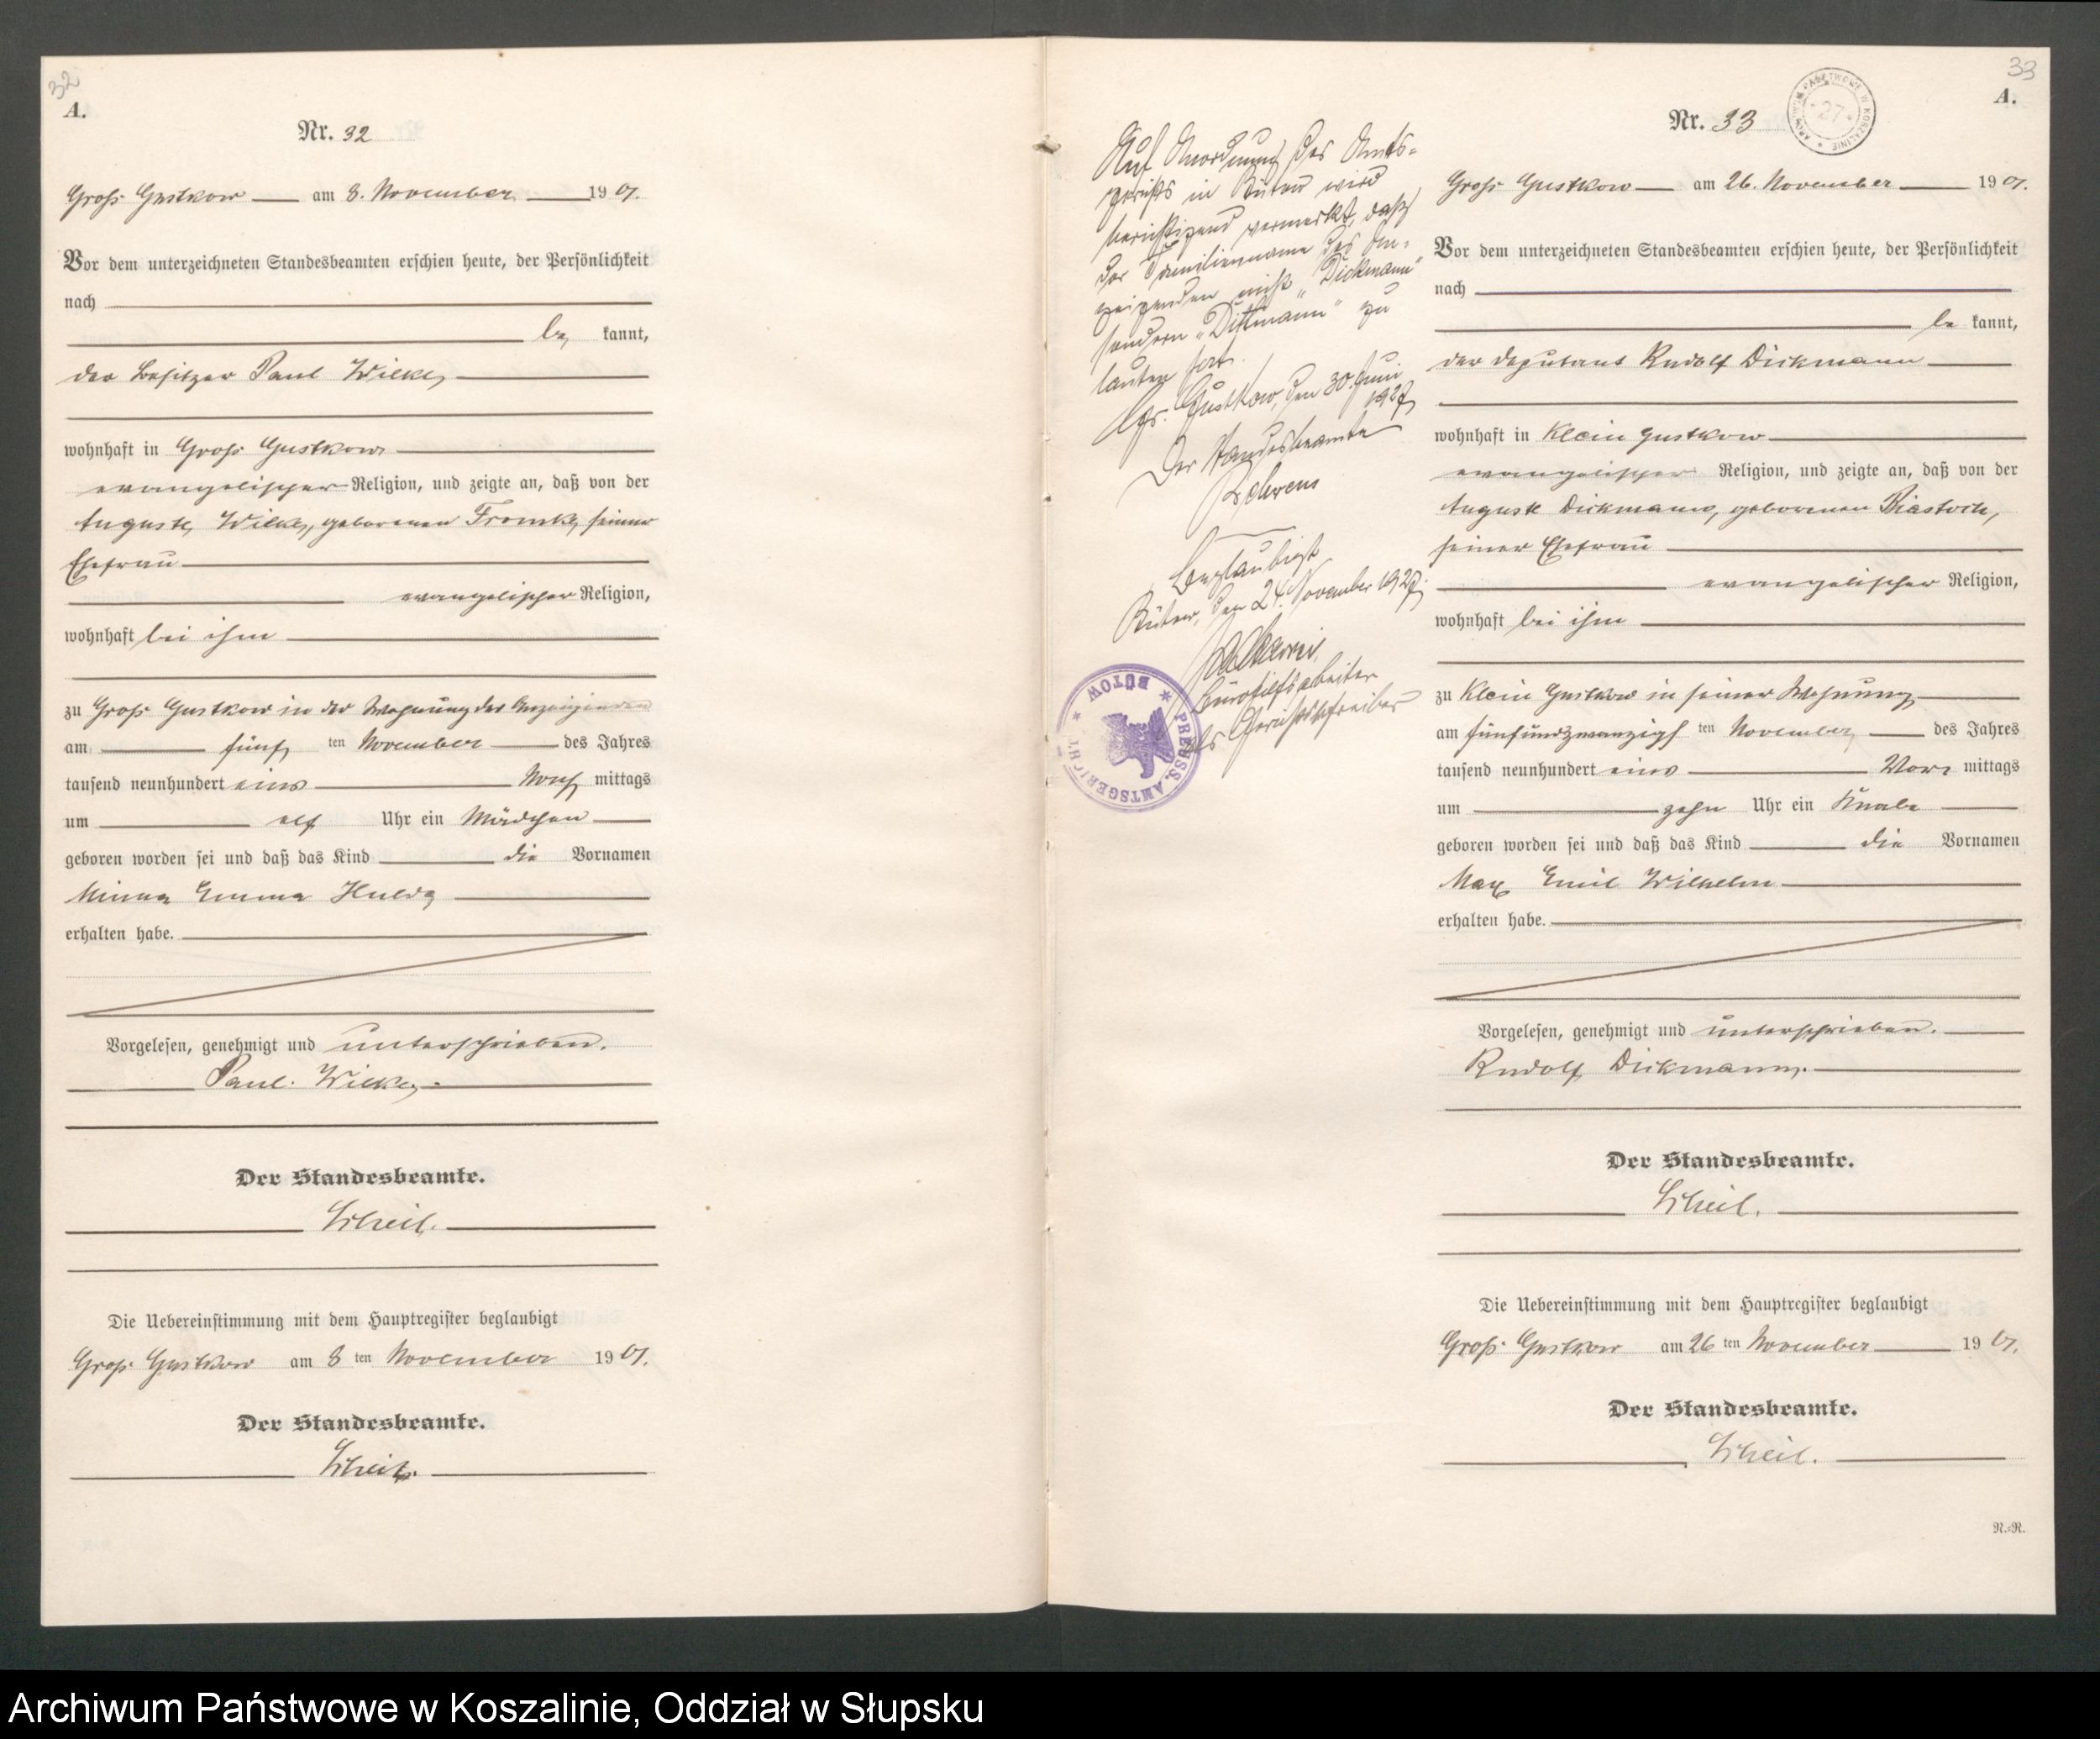 32
A.
Nr. 32
Groß Gustkow am 8. November 1901.
Vor dem unterzeichneten Standesbeamten erschien heute, der Persönlichkeit
nach
be kannt,
der Besitzer Paul Wilke,
wohnhaft in Groß Gustkow
evangelischer Religion, und zeigte an, daß von der
Auguste Wilke, geborenen seiner
Ehefrau
evangelischer Religion,
wohnhaft bei ihm
zu Groß Gustkow in der Wohnung des Anzeigenden
am fünf ten November des Jahres
tausend neunhundert eins Nach mittags
um elf Uhr ein Mädchen
geboren worden sei und daß das Kind die Vornamen
Minna Emma Hulda
erhalten habe.
Vorgelesen, genehmigt und unterschrieben.
Paul Wilke.
Der Standesbeamte.
Scheil.
Die Uebereinstimmung mit dem Hauptregister beglaubigt
Groß Gustkow am 8 ten November 1901.
Der Standesbeamte.
Scheil.
Auf Anordnung des Amts=
gerichts in Bütow wird
berichtigend vermerkt, daß
der Familienname des An=
zeigenden nicht „Dickmann"
sondern „Dittmann" zu
lauten hat.
Gr. Gustkow, den 30. Juni
1927
Der Standesbeamte
Behrens
Beglaubigt
Bütow, den 24. November 1927.
Bürohilfsarbeiter
als Gerichtsschreiber
PREUSS. AMTSGERICHT * BÜTOW *
33
A.
ARCHIWUM PAŃSTWOWE W KOSZALINIE
27
Nr. 33
Groß Gustkow am 26. November 1901.
Vor dem unterzeichneten Standesbeamten erschien heute, der Persönlichkeit
nach
be kannt,
der Deputant Rudolf Dickmann
wohnhaft in Klein Gustkow
evangelischer Religion, und zeigte an, daß von der
Auguste Dickmann, geborenen
seiner Ehefrau
evangelischer Religion,
wohnhaft bei ihm
zu Klein Gustkow in seiner Wohnung
am fünfundzwanzigs ten November des Jahres
tausend neunhundert eins Vor mittags
um zehn Uhr ein Knabe
geboren worden sei und daß das Kind die Vornamen
Max Emil Wilhelm
erhalten habe.
Vorgelesen, genehmigt und unterschrieben.
Rudolf Dickmann.
Der Standesbeamte.
Scheil.
Die Uebereinstimmung mit dem Hauptregister beglaubigt
Groß Gustkow am 26 ten November 1901.
Der Standesbeamte.
Scheil.
N.=N.
Archiwum Państwowe w Koszalinie, Oddział w Słupsku